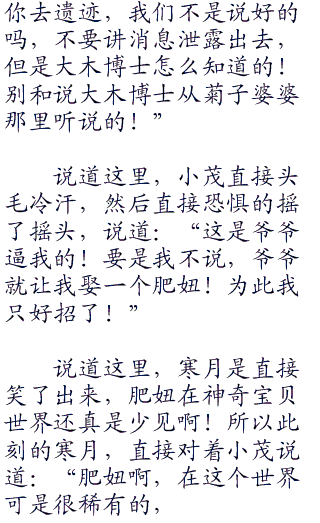 你去遗迹，我们不是说好的
吗，不要讲消息泄露出去，
但是大木博士怎么知道的！
别和说大木博士从菊子婆婆
那里听说的！”
说道这里，小茂直接头
毛冷汗，然后直接恐惧的摇
了摇头，说道：“这是爷爷
逼我的！要是我不说，爷爷
就让我娶一个肥妞！为此我
只好招了！”
说道这里，寒月是直接
笑了出来，肥妞在神奇宝贝
世界还真是少见啊！所以此
刻的寒月，直接对着小茂说
道：“肥妞啊，在这个世界
可是很稀有的，